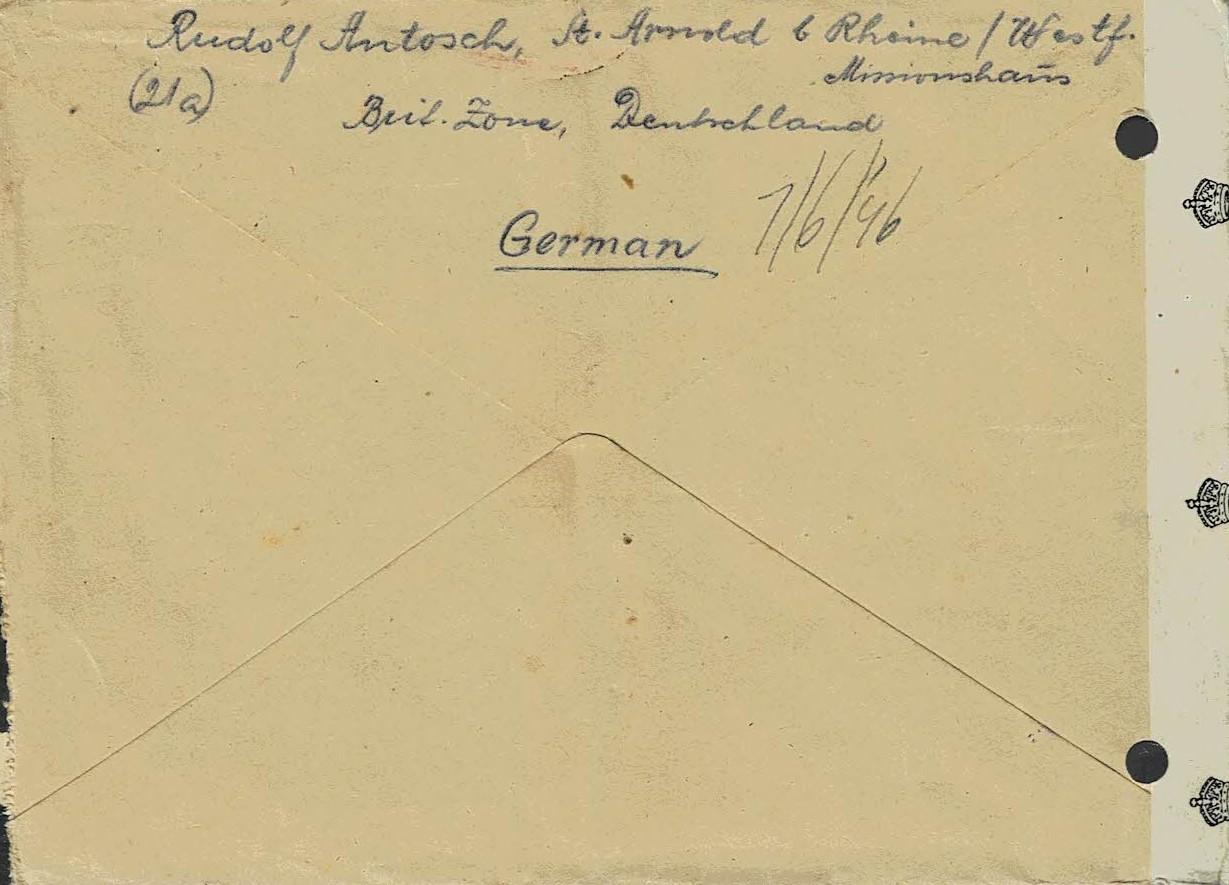 Rudolf Antosch, St. Arnold b Rheine / Westf.
Missionshaus
(21a)
Brit. Zone, Deutschland
German
7/6/46